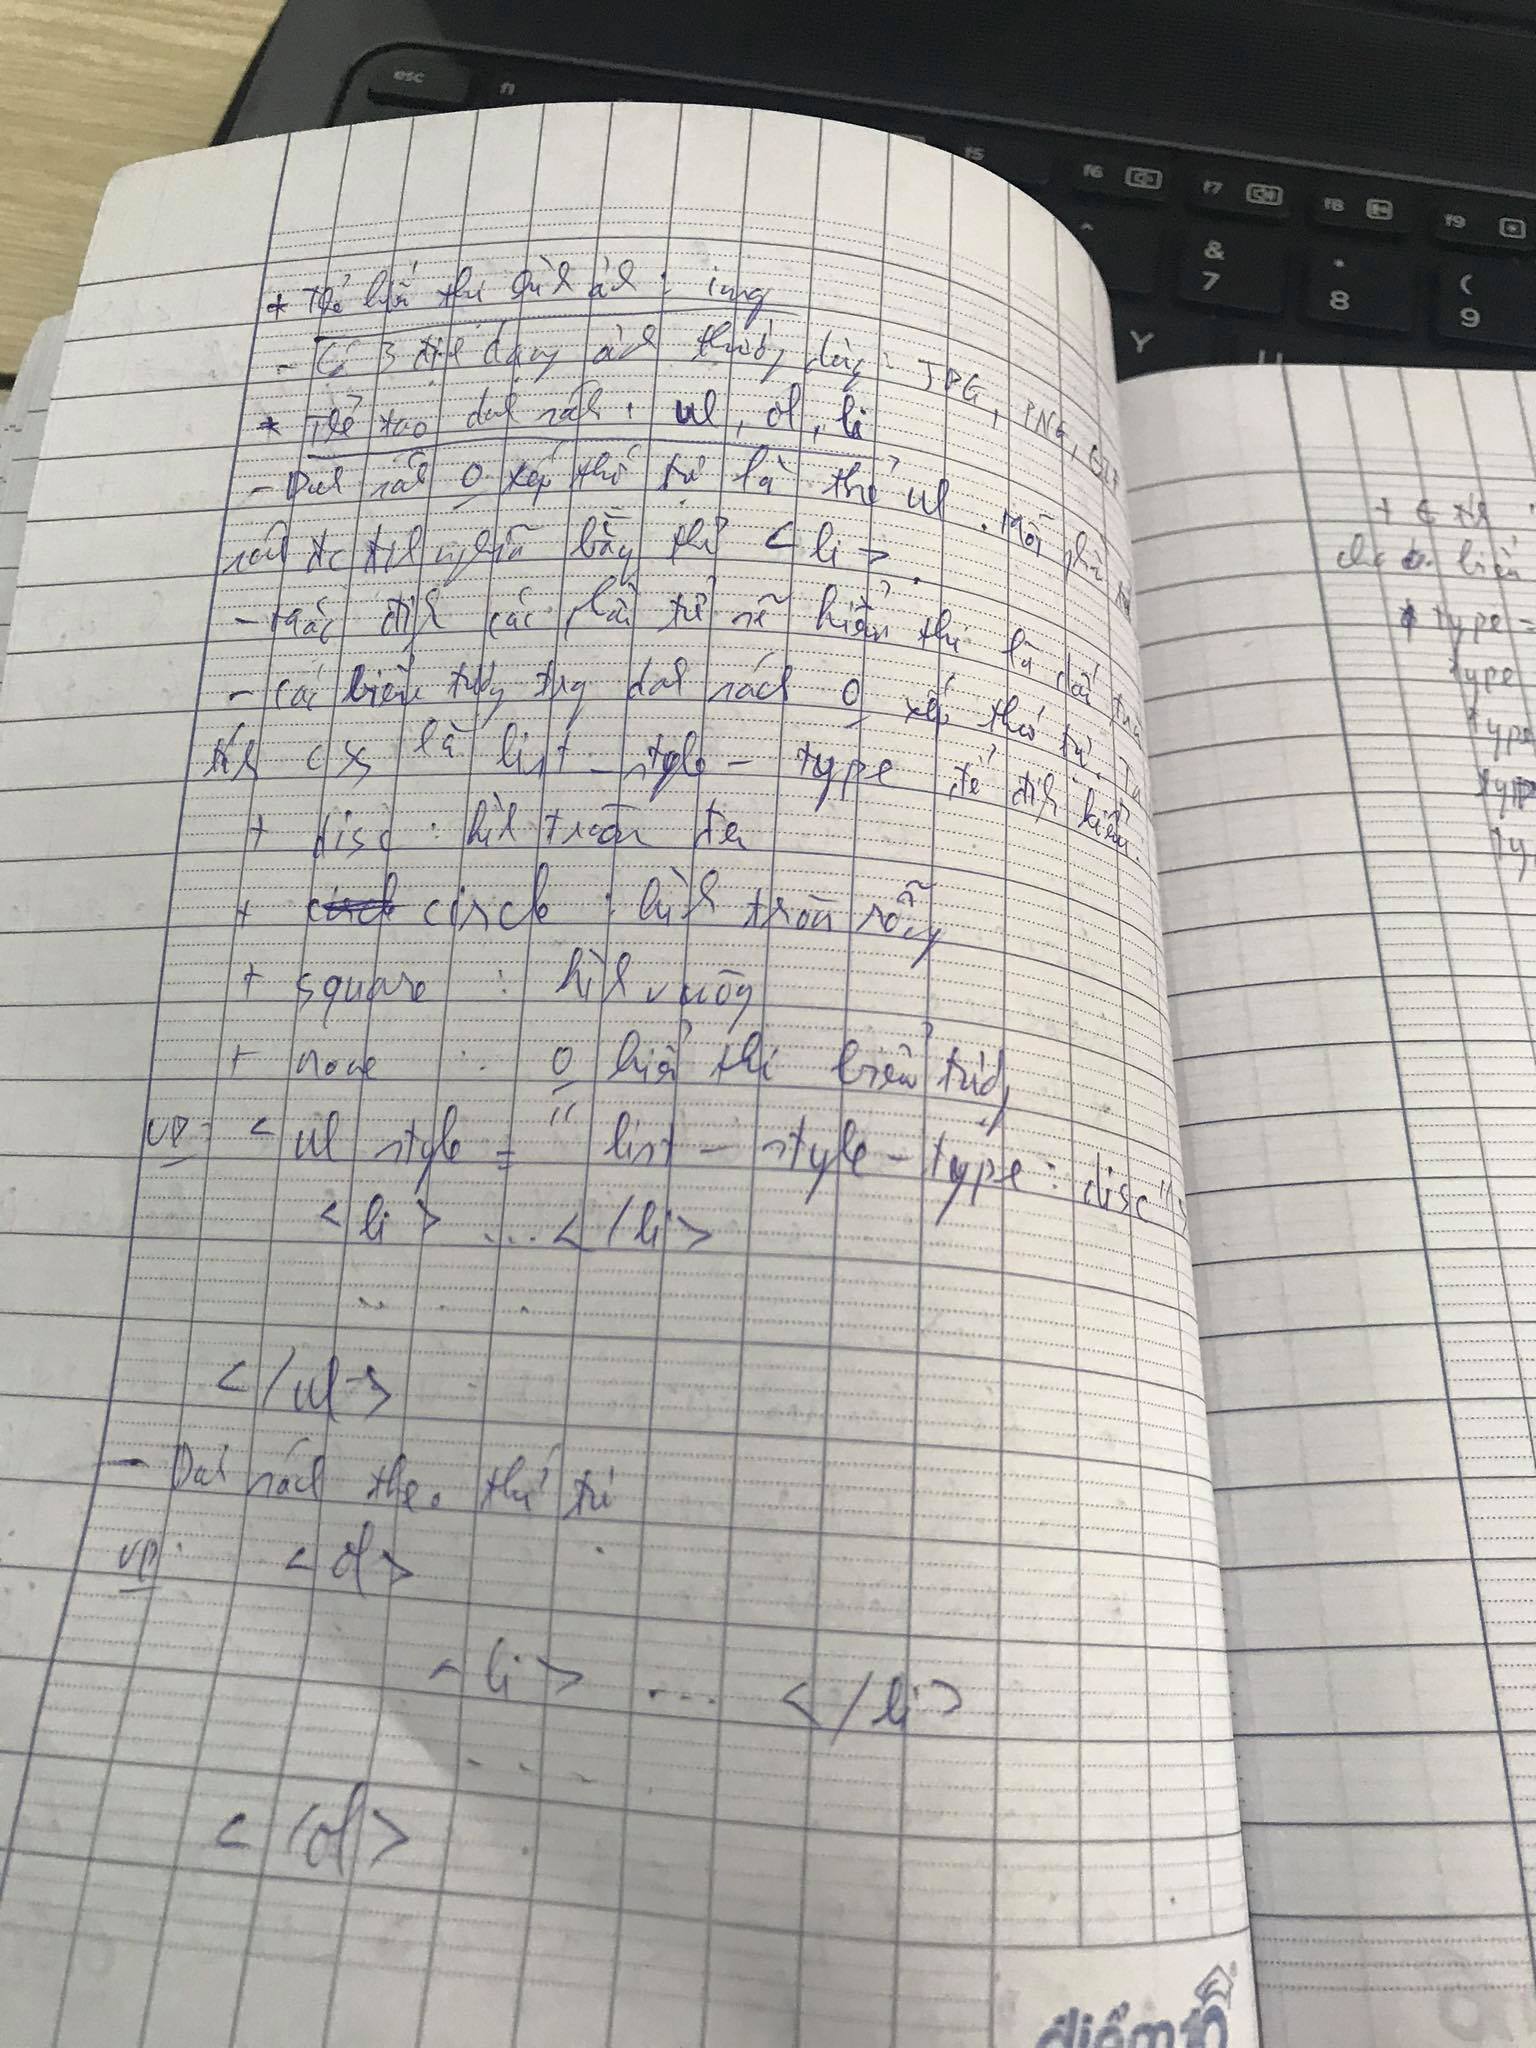 * Thẻ hiển thị hìh ảh : img
- Có 3 địh dạng ảh thườg dùg : JPG, PNG, GIF
* Thẻ tạo dah sách : ul, ol, li
- Dah sách O xếp thứ tự là thẻ ul . Mỗi phần tử
địh nghĩa bằng thẻ < li > .
- Mặc địh các phần tử sẽ hiển thị là dấu tròn
- Các biểu tượg tṛg dah sách O xếp thứ tự.
tíh css là list - style - type để địh kiểu.
+ disc : hìh tròn đen
+ circle : hìh tròn rỗng
+ square : hìh vuôg
+ none : O hiển thị biểu tượg
VD : < ul style = " list - style - type : disc " >
< li > ... < / li >
....
< / ul >
- Dah sách theo thứ tự
VD : < ol >
< li > ... < / li >
....
< / ol >
điểm 10
+
biến
* type =
type
type
type
ty
esc
f1
f5
f6
f7
f8
f9
&
7
*
8
(
9
Y
U